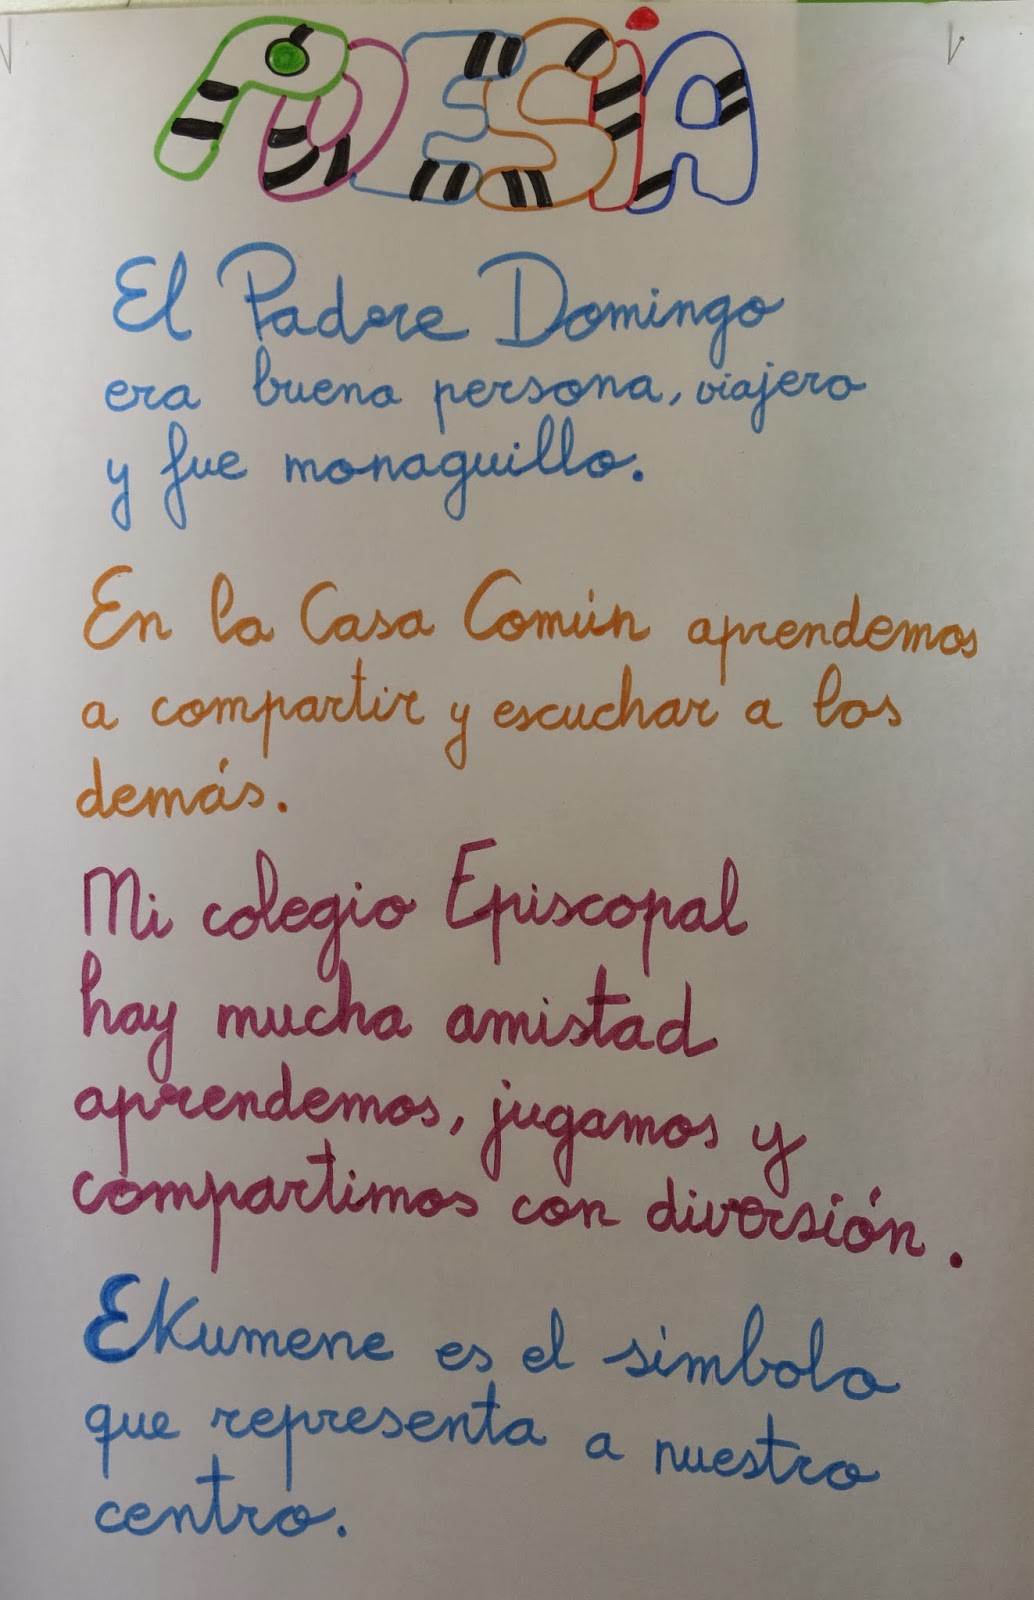 POESÍA
El Padre Domingo
era buena persona, viajero
y fue monaguillo.
En la Casa Común aprendemos
a compartir y escuchar a los
demás.
Mi colegio Episcopal
hay mucha amistad
aprendemos, jugamos y
compartimos con diversión.
EKumene es el simbolo
que representa a nuestro
centro.